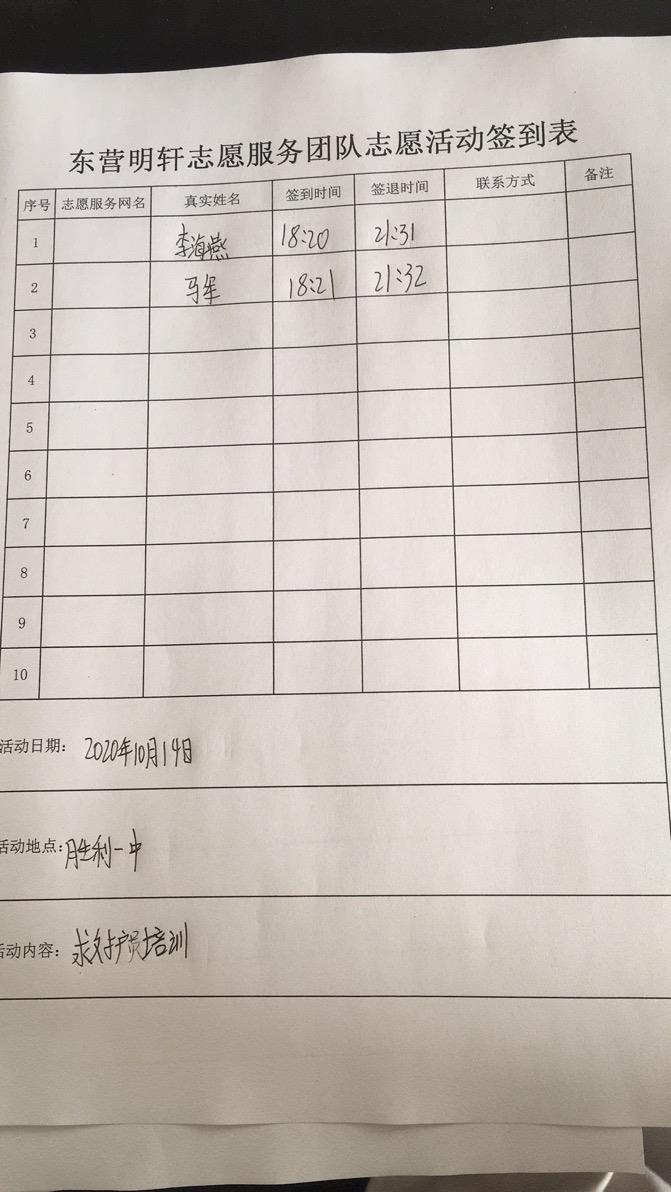 东营明轩志愿服务团队志愿活动签到表
序号 志愿服务网名 真实姓名 签到时间 签退时间 联系方式 备注
1 李海燕 18:20 21:31
2 马军 18:21 21:32
3
4
5
6
7
8
9
10
活动日期: 2020年10月14日
活动地点: 胜利一中
活动内容: 救护员培训